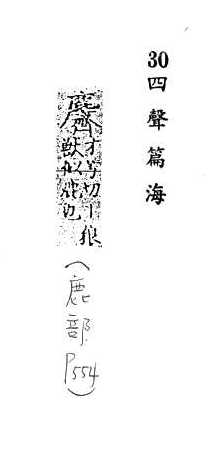 30四聲篇海
麡
才兮切丨狼
獸似鹿也
(鹿部 P554)